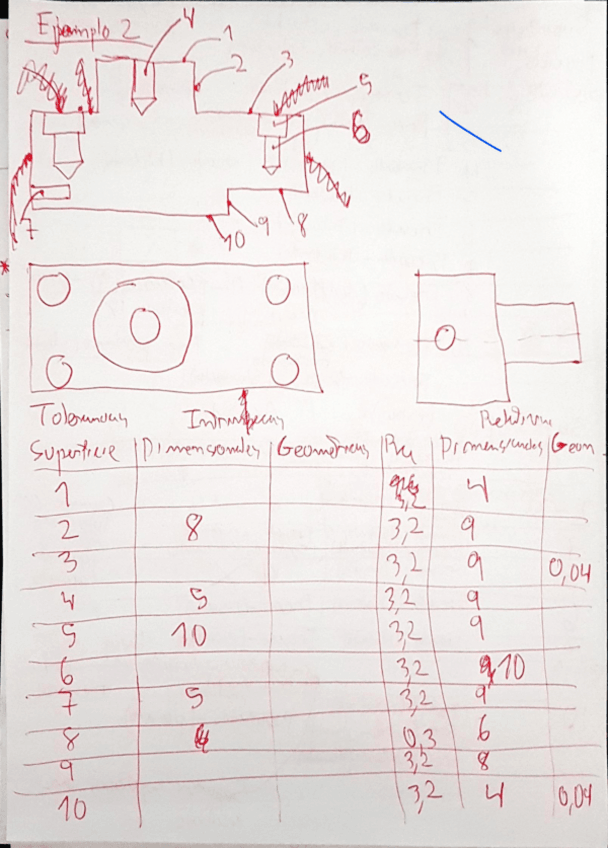 Ejemplo 2
4
1
2
3
5
6
7
10
9
8
Tolerancias Intrinsecas Relativas
Superficie Dimensionales Geométricas Ra Dimensionales Geom
1 3,2 4
2 8 3,2 9
3 3,2 9 0,04
4 5 3,2 9
5 10 3,2 9
6 3,2 10
7 5 3,2 9
8 0,3 6
9 3,2 8
10 3,2 4 0,04